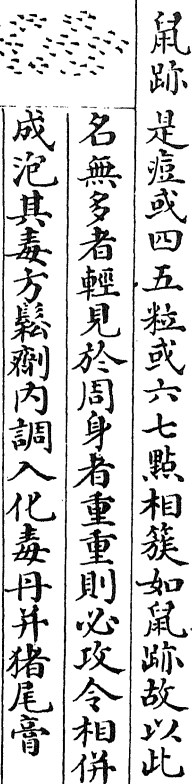 鼠跡 是痘或四五粒或六七點相簇如鼠跡故以此
名無多者輕見於周身者重重則必攻令相併
成泡其毒方鬆劑内調入化毒丹并猪尾膏